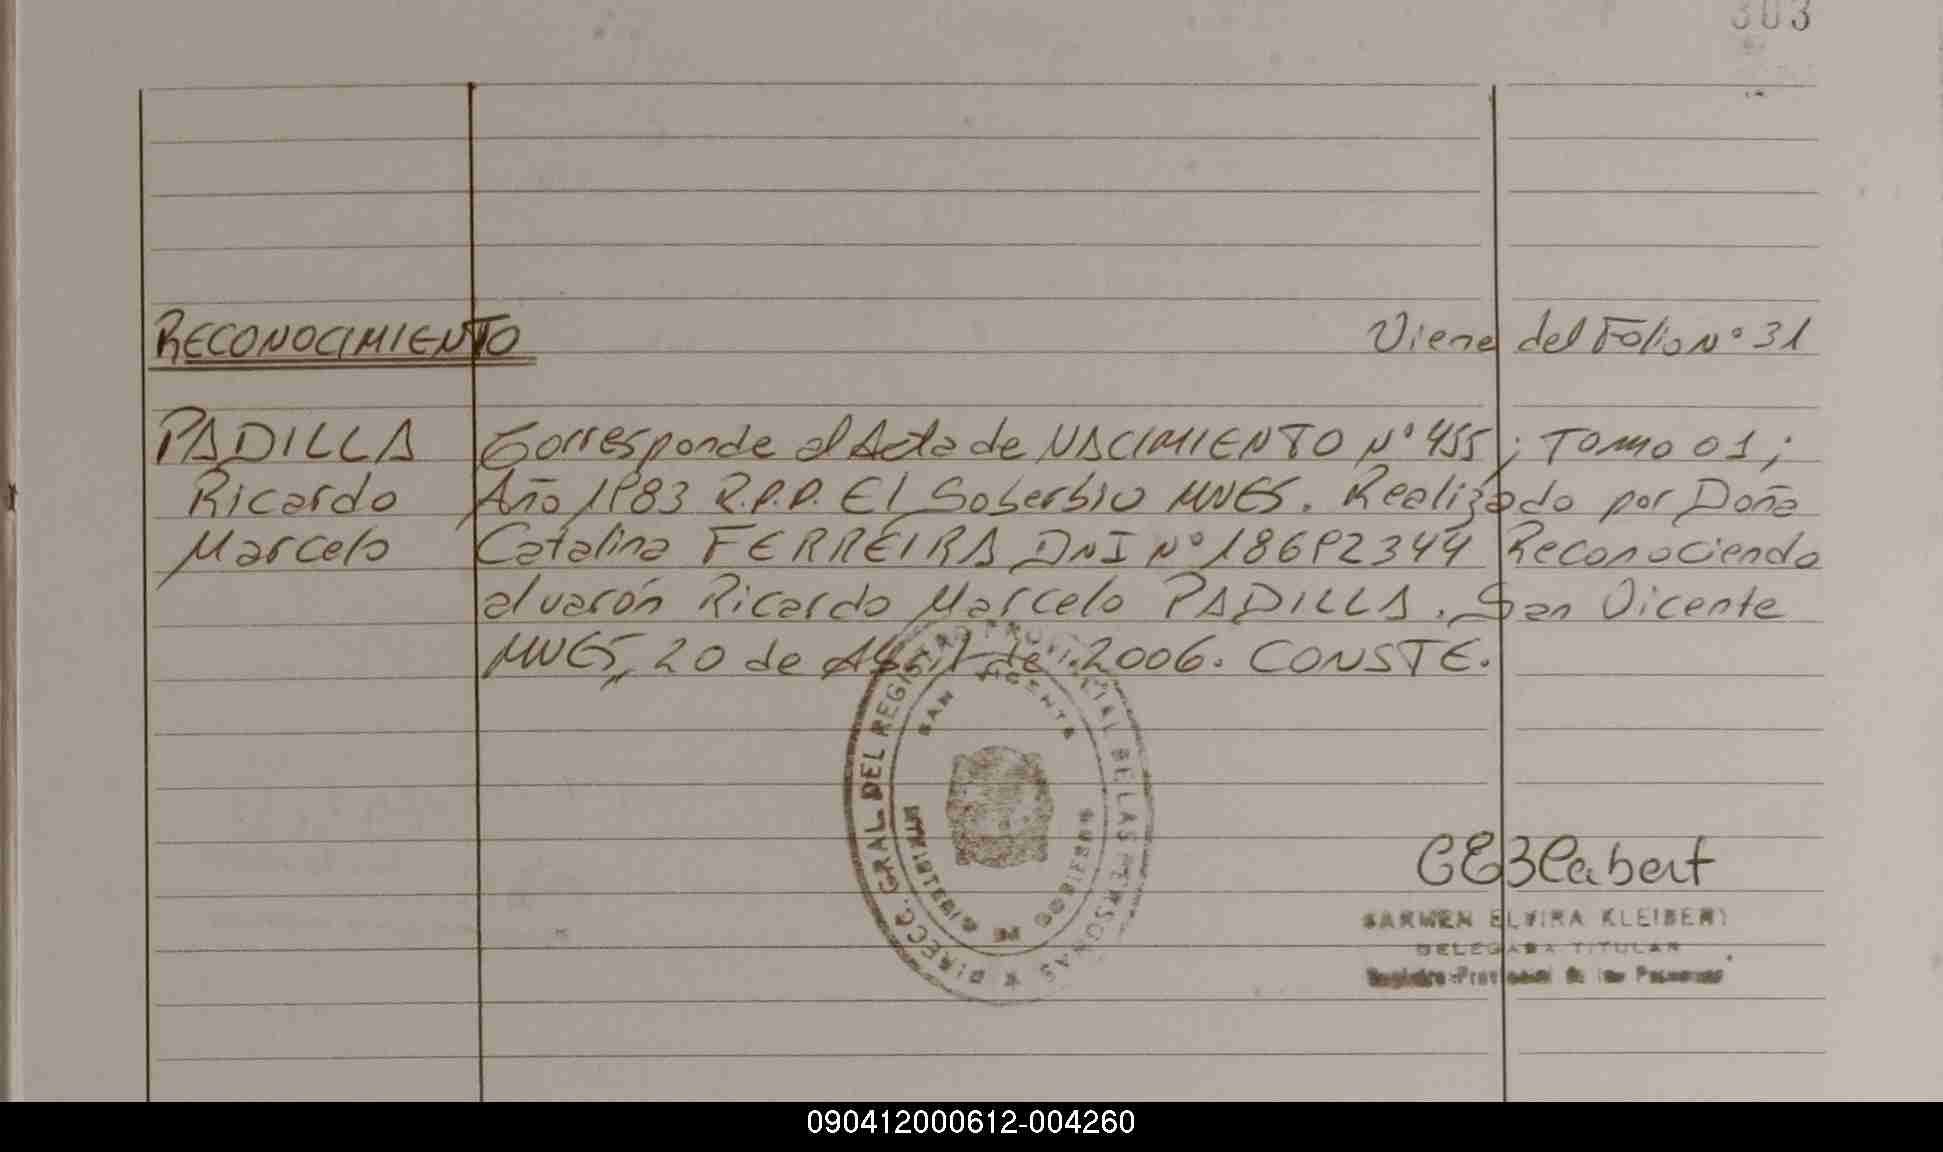 303
RECONOCIMIENTO Viene del Folio Nº 31
PADILLA Corresponde al Acta de NACIMIENTO Nº 455; TOMO 01;
Ricardo Año 1983 R.P.P. El Soberbio MNES. Realizado por Doña
Marcelo Catalina FERREIRA DNI Nº 18692344 Reconociendo
al varón Ricardo Marcelo PADILLA. San Vicente
MNES, 20 de Abril de 2006. CONSTE.
DIRECC. GRAL. DEL REGISTRO PROVINCIAL DE LAS PERSONAS
SAN VICENTE
MINISTERIO DE GOBIERNO
CARMEN ELVIRA KLEIBERT
DELEGADA TITULAR
Registro Provincial de las Personas
090412000612-004260